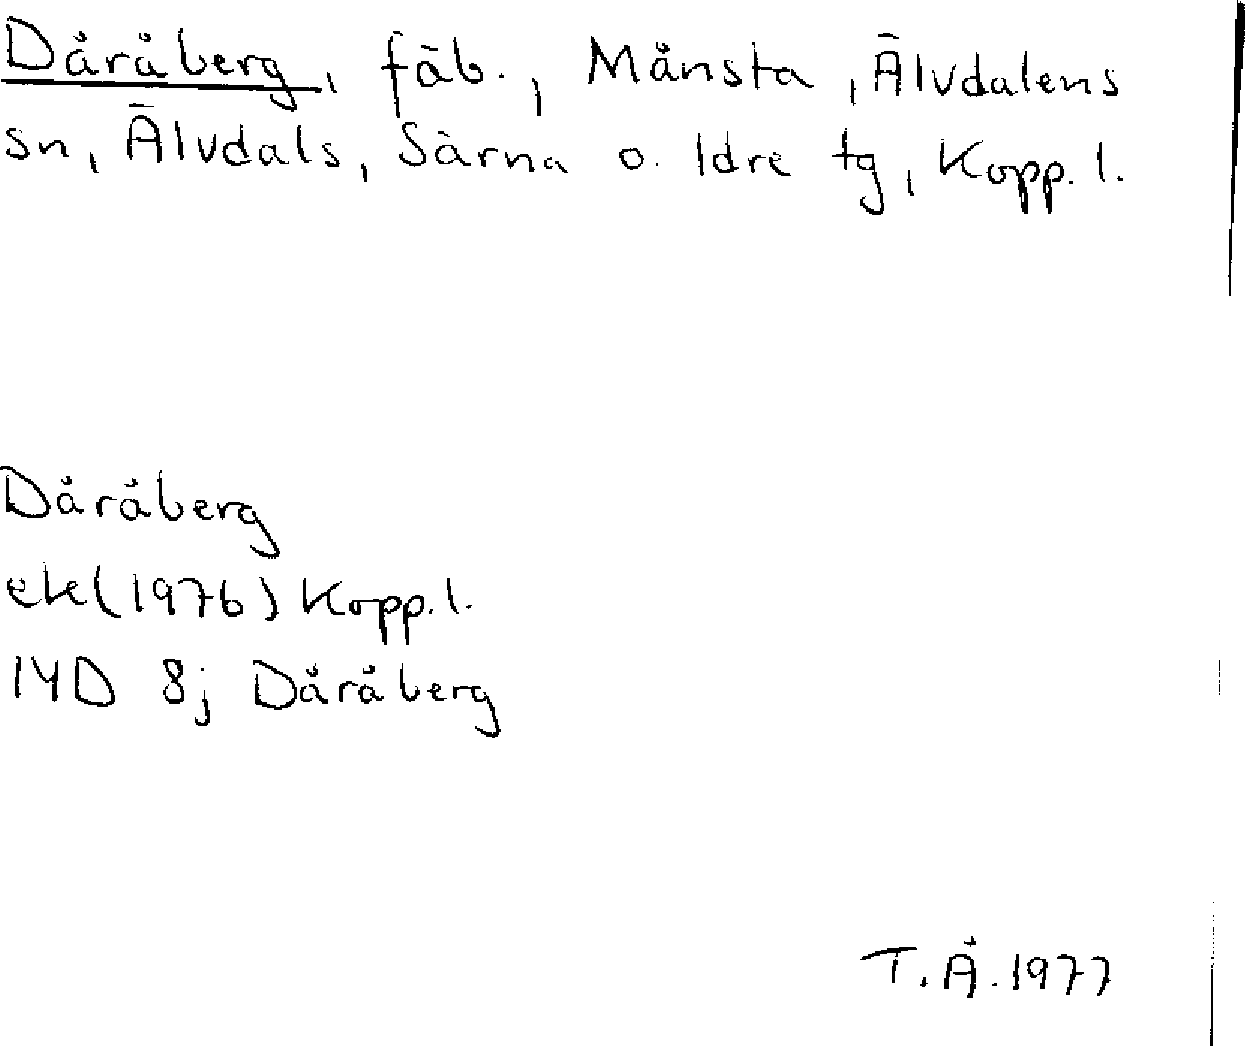 Dåråberg, fäb., Månsta, Älvdalens
sn, Älvdals, Särna o. Idre tg, Kopp. l.
Dåråberg
ek(1976) Kopp. l.
14D 8j Dåråberg
T.Å. 1977